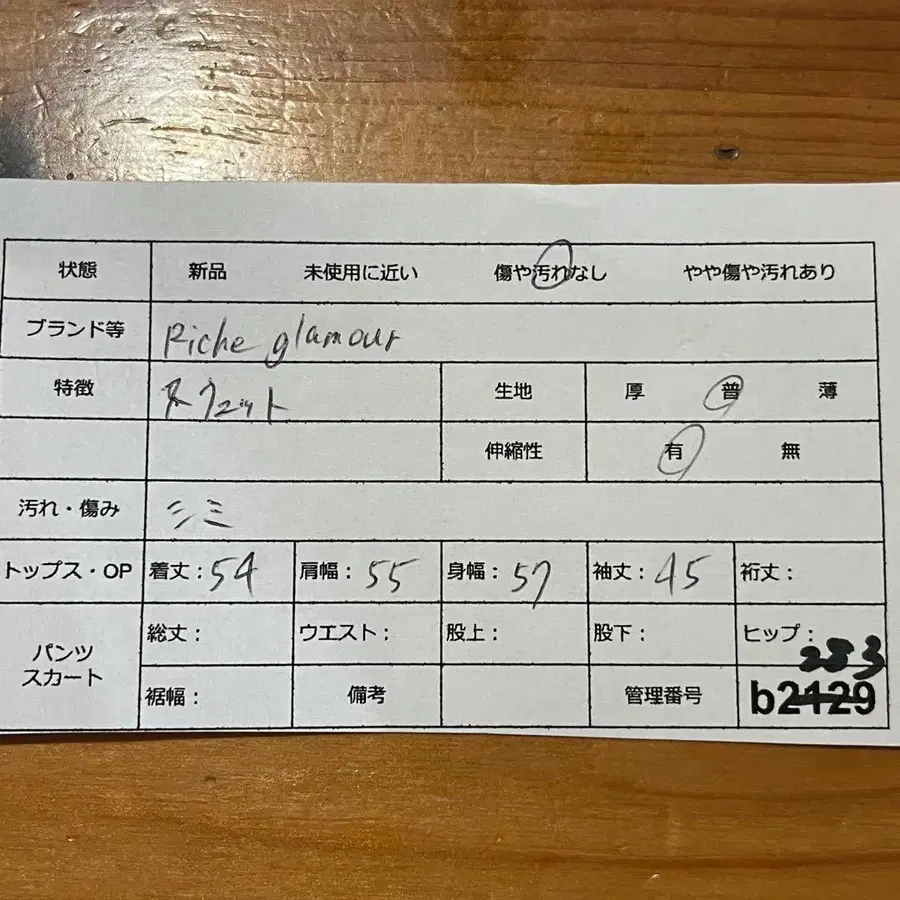 状態 新品 未使用に近い 傷や汚れなし やや傷や汚れあり
ブランド等 Riche glamour
特徴 スウェット 生地 厚 普 薄
伸縮性 有 無
汚れ・傷み シミ
トップス・OP 着丈:54 肩幅:55 身幅:57 袖丈:45 裄丈:
パンツ スカート 総丈: ウエスト: 股上: 股下: ヒップ:
253
裾幅: 備考 管理番号 b2129